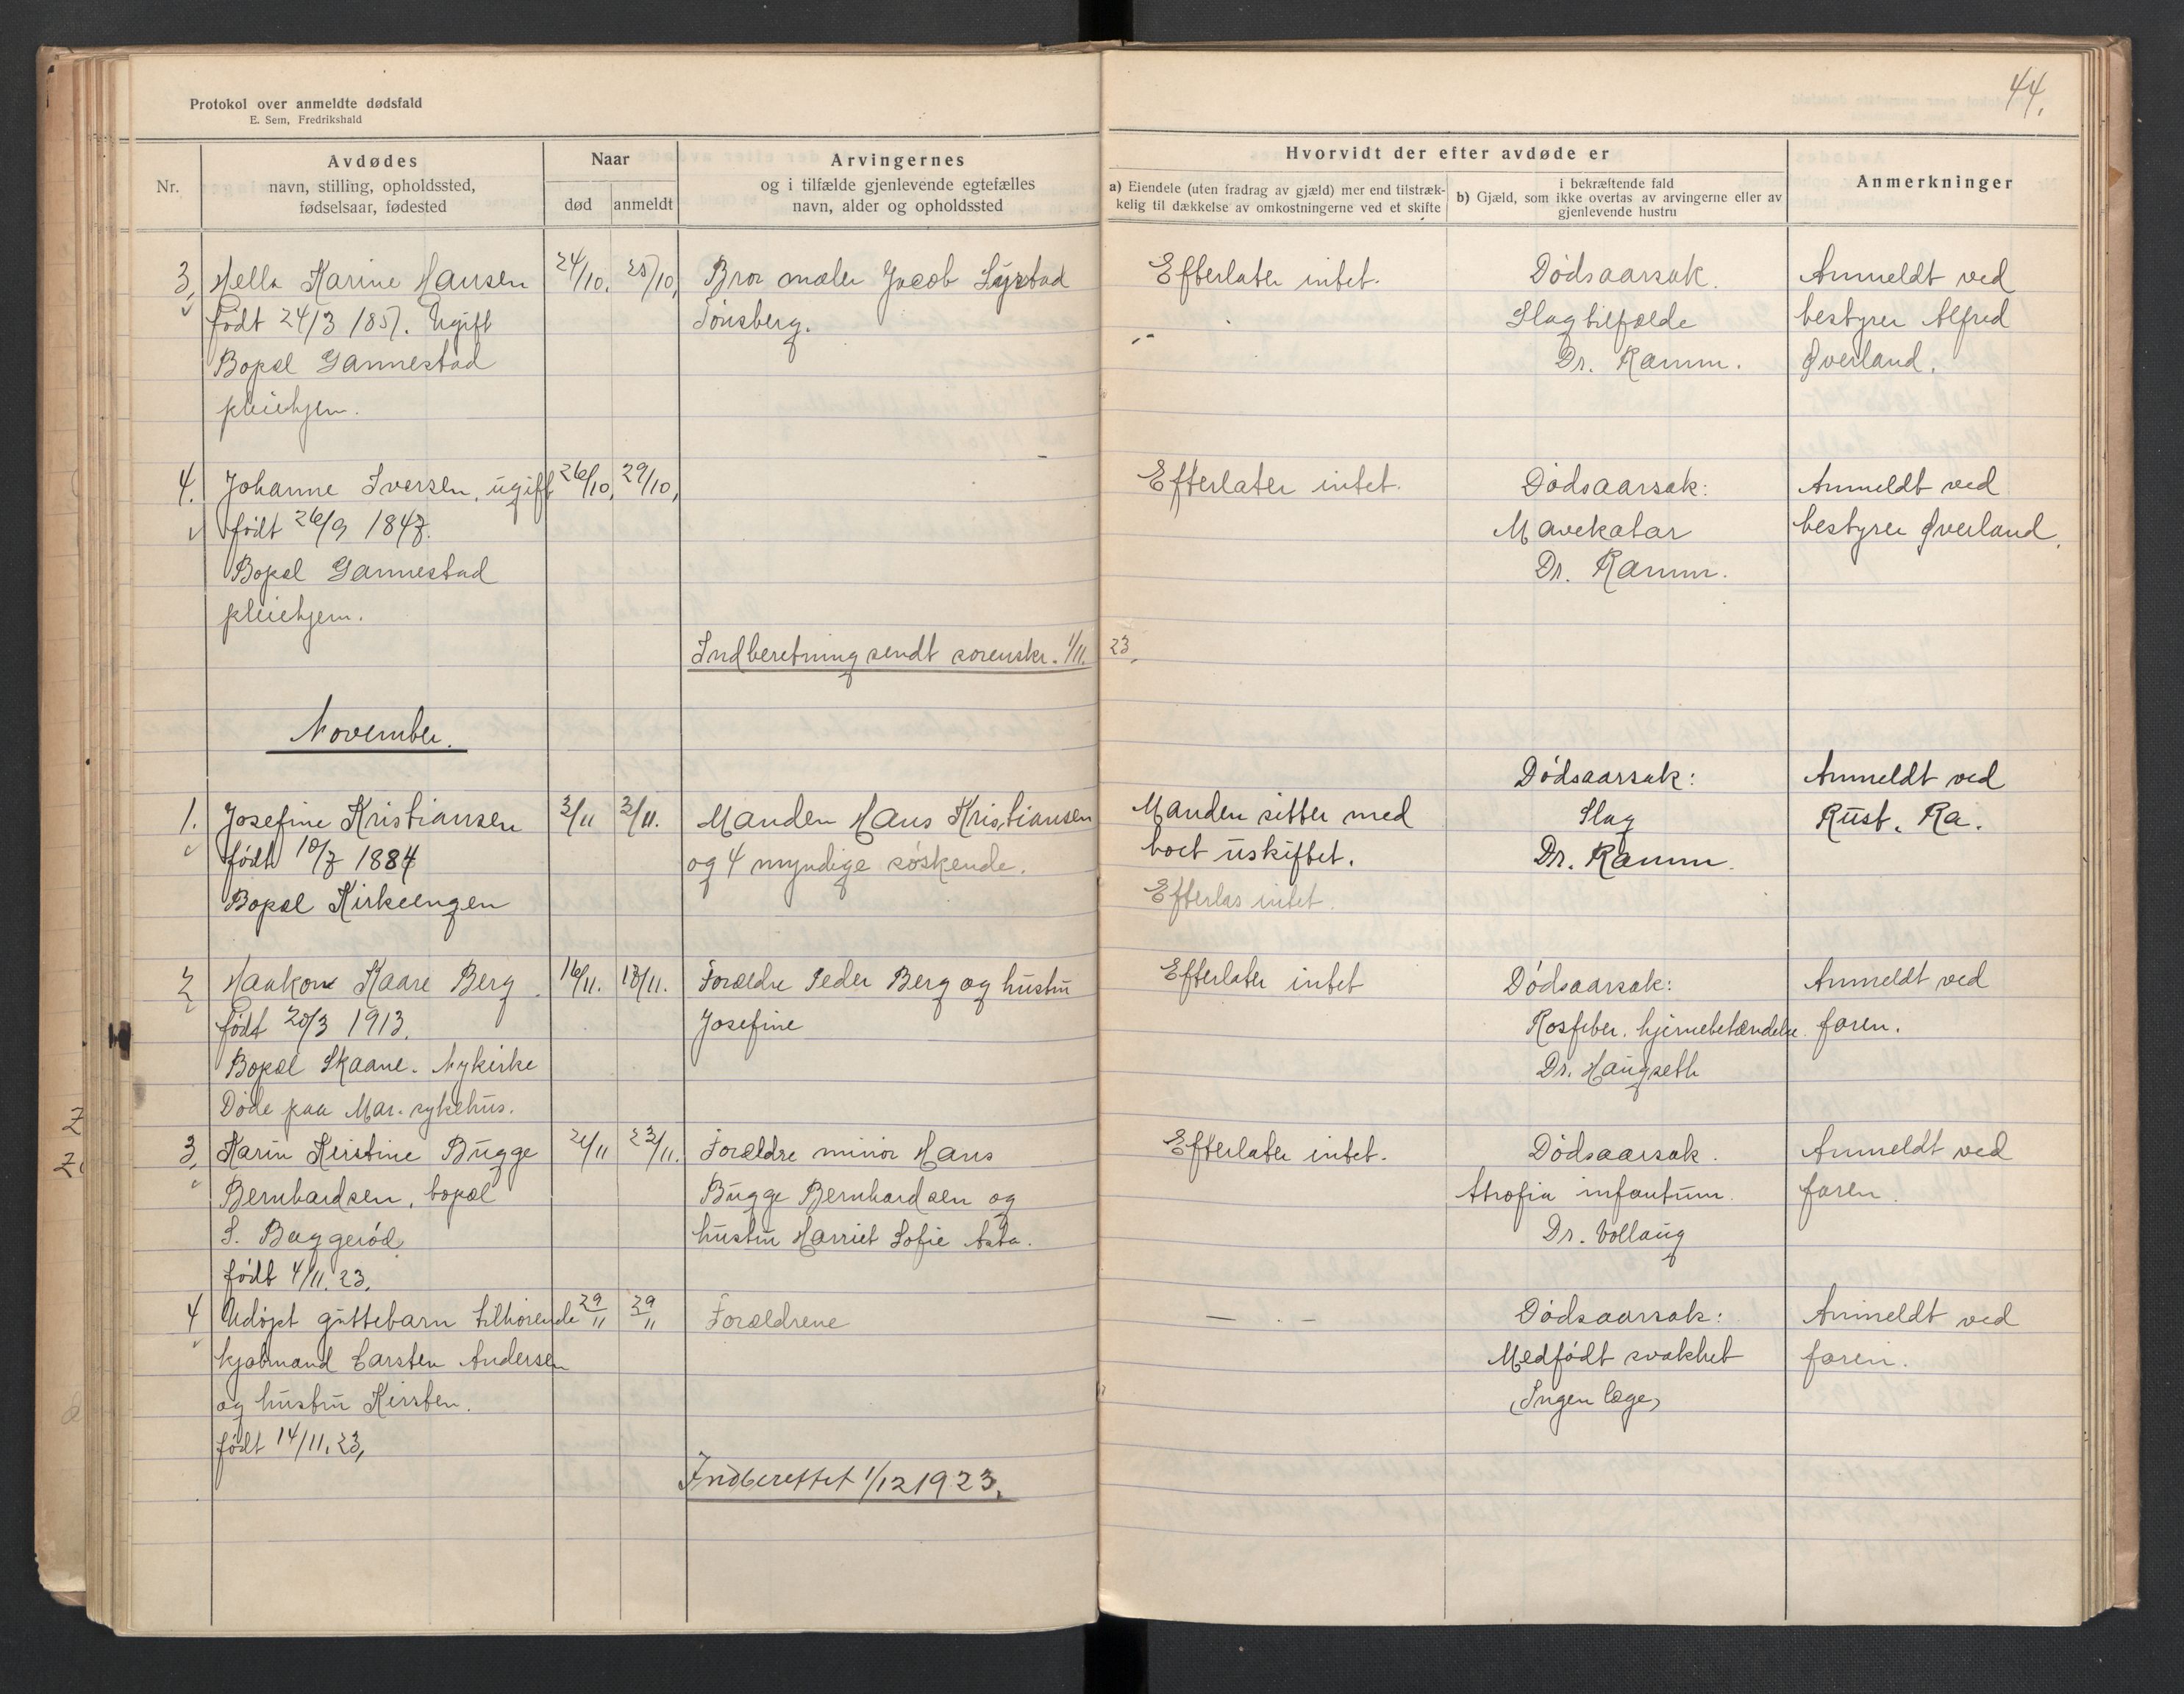 Protokol over anmeldte dødsfald
E. Sem, Fredrikshald
44.
Nr.
Avdødes
navn, stilling, opholdssted,
fødselsaar, fødested
Naar
død
anmeldt
Arvingernes
og i tilfælde gjenlevende egtefælles
navn, alder og opholdssted
Hvorvidt der efter avdøde er
a) Eiendele (uten fradrag av gjæld) mer end tilstræk-
kelig til dækkelse av omkostningerne ved et skifte
i bekræftende fald
b) Gjæld, som ikke overtas av arvingerne eller av
gjenlevende hustru
Anmerkninger
3, Hella Karine Hansen 24/10. 25/10, Bror maler Jacob Efterlater intet. Dødsaarsak. Anmeldt ved
født 24/3 1857. Ugift Tønsberg. Slagtilfælde bestyrer Alfred
Bopæl Gannestad Dr. Ramm. Øverland.
pleiehjem.
4. Johanne Iversen, ugift 26/10, 29/10, Efterlater intet. Dødsaarsak: Anmeldt ved
født 26/9 1847. Mavekatar bestyrer Øverland.
Bopæl Gannestad Dr. Ramm.
pleiehjem.
Indberetning sendt sorenskr. 1/11. 23.
November.
Dødsaarsak: Anmeldt ved
1. Josefine Kristiansen 2/11 3/11. Manden Hans Kristiansen Manden sitter med Slag Rust. Ra.
født 10/7 1884 og 4 myndige søskende. boet uskiftet. Dr. Ramm.
Bopæl Kirkeengen Efterlas intet.
2 Haakon Kaare Berg 16/11. 18/11. Forældre Peder Berg og hustru Efterlater intet Dødsaarsak: Anmeldt ved
født 20/3 1913. Josefine Rosfeber. hjernebetændelse. faren.
Bopæl Skaane. Nykirke Dr. Haugseth
Døde paa Mar. sykehus.
3, Karin Kirstine Bugge 21/11 23/11. Forældre minør Hans Efterlater intet. Dødsaarsak. Anmeldt ved
Bernhardsen, bopæl Bugge Bernhardsen og Atrofia infantum. faren.
S. Baggerød hustru Harriet Sofie Asta. Dr. Vollaug
født 4/11. 23.
4 Udøpt guttebarn tilhørende 29/11 29/11 Forældrene — . – Dødsaarsak: Anmeldt ved
kjøbmand Carsten Andersen Medfødt svakhet faren.
og hustru Kirsten. (Ingen læge)
født 14/11. 23,
Indberettet 1/12 1923.